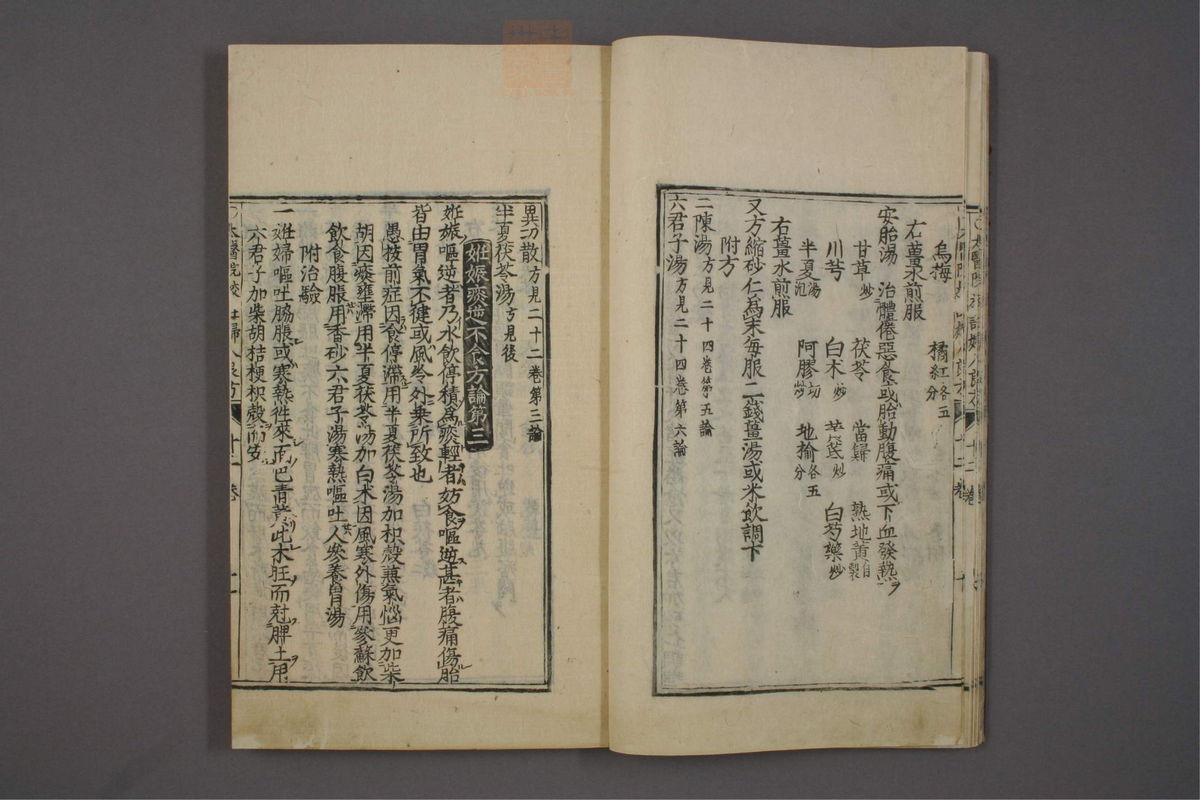 烏梅 橘紅各五
右薑水煎服
安胎湯 治體倦惡食或胎動腹痛或下血發熱
甘草炒 茯苓 當歸 熟地黃自製
川芎 白朮炒 黃芪炒 白芍藥炒
半夏湯泡 阿膠切炒 地榆各五分
右薑水煎服
又方縮砂仁為末每服二錢薑湯或米飲調下
附方
二陳湯方見二十四卷第五論
六君子湯方見二十四卷第六論
異功散方見二十二卷第三論
半夏茯苓湯方見後
姙娠痰逆不食方論第三
姙娠嘔逆者乃水飲停積為痰輕者妨食嘔逆甚者腹痛傷胎
皆由胃氣不健或風冷外乗所致也
愚按前症因食停滯用半夏茯苓湯加枳殼兼氣惱更加柴
胡因痰壅滯用半夏茯苓湯加白朮因風寒外傷用參蘇飲
飲食腹脹用香砂六君子湯寒熱嘔吐人參養胃湯
附治驗
一姙婦嘔吐脇脹或寒熱徃來面色青黃此木旺而尅脾土用
六君子加柴胡桔梗枳殼而安
太醫院校註婦人良方 十二卷